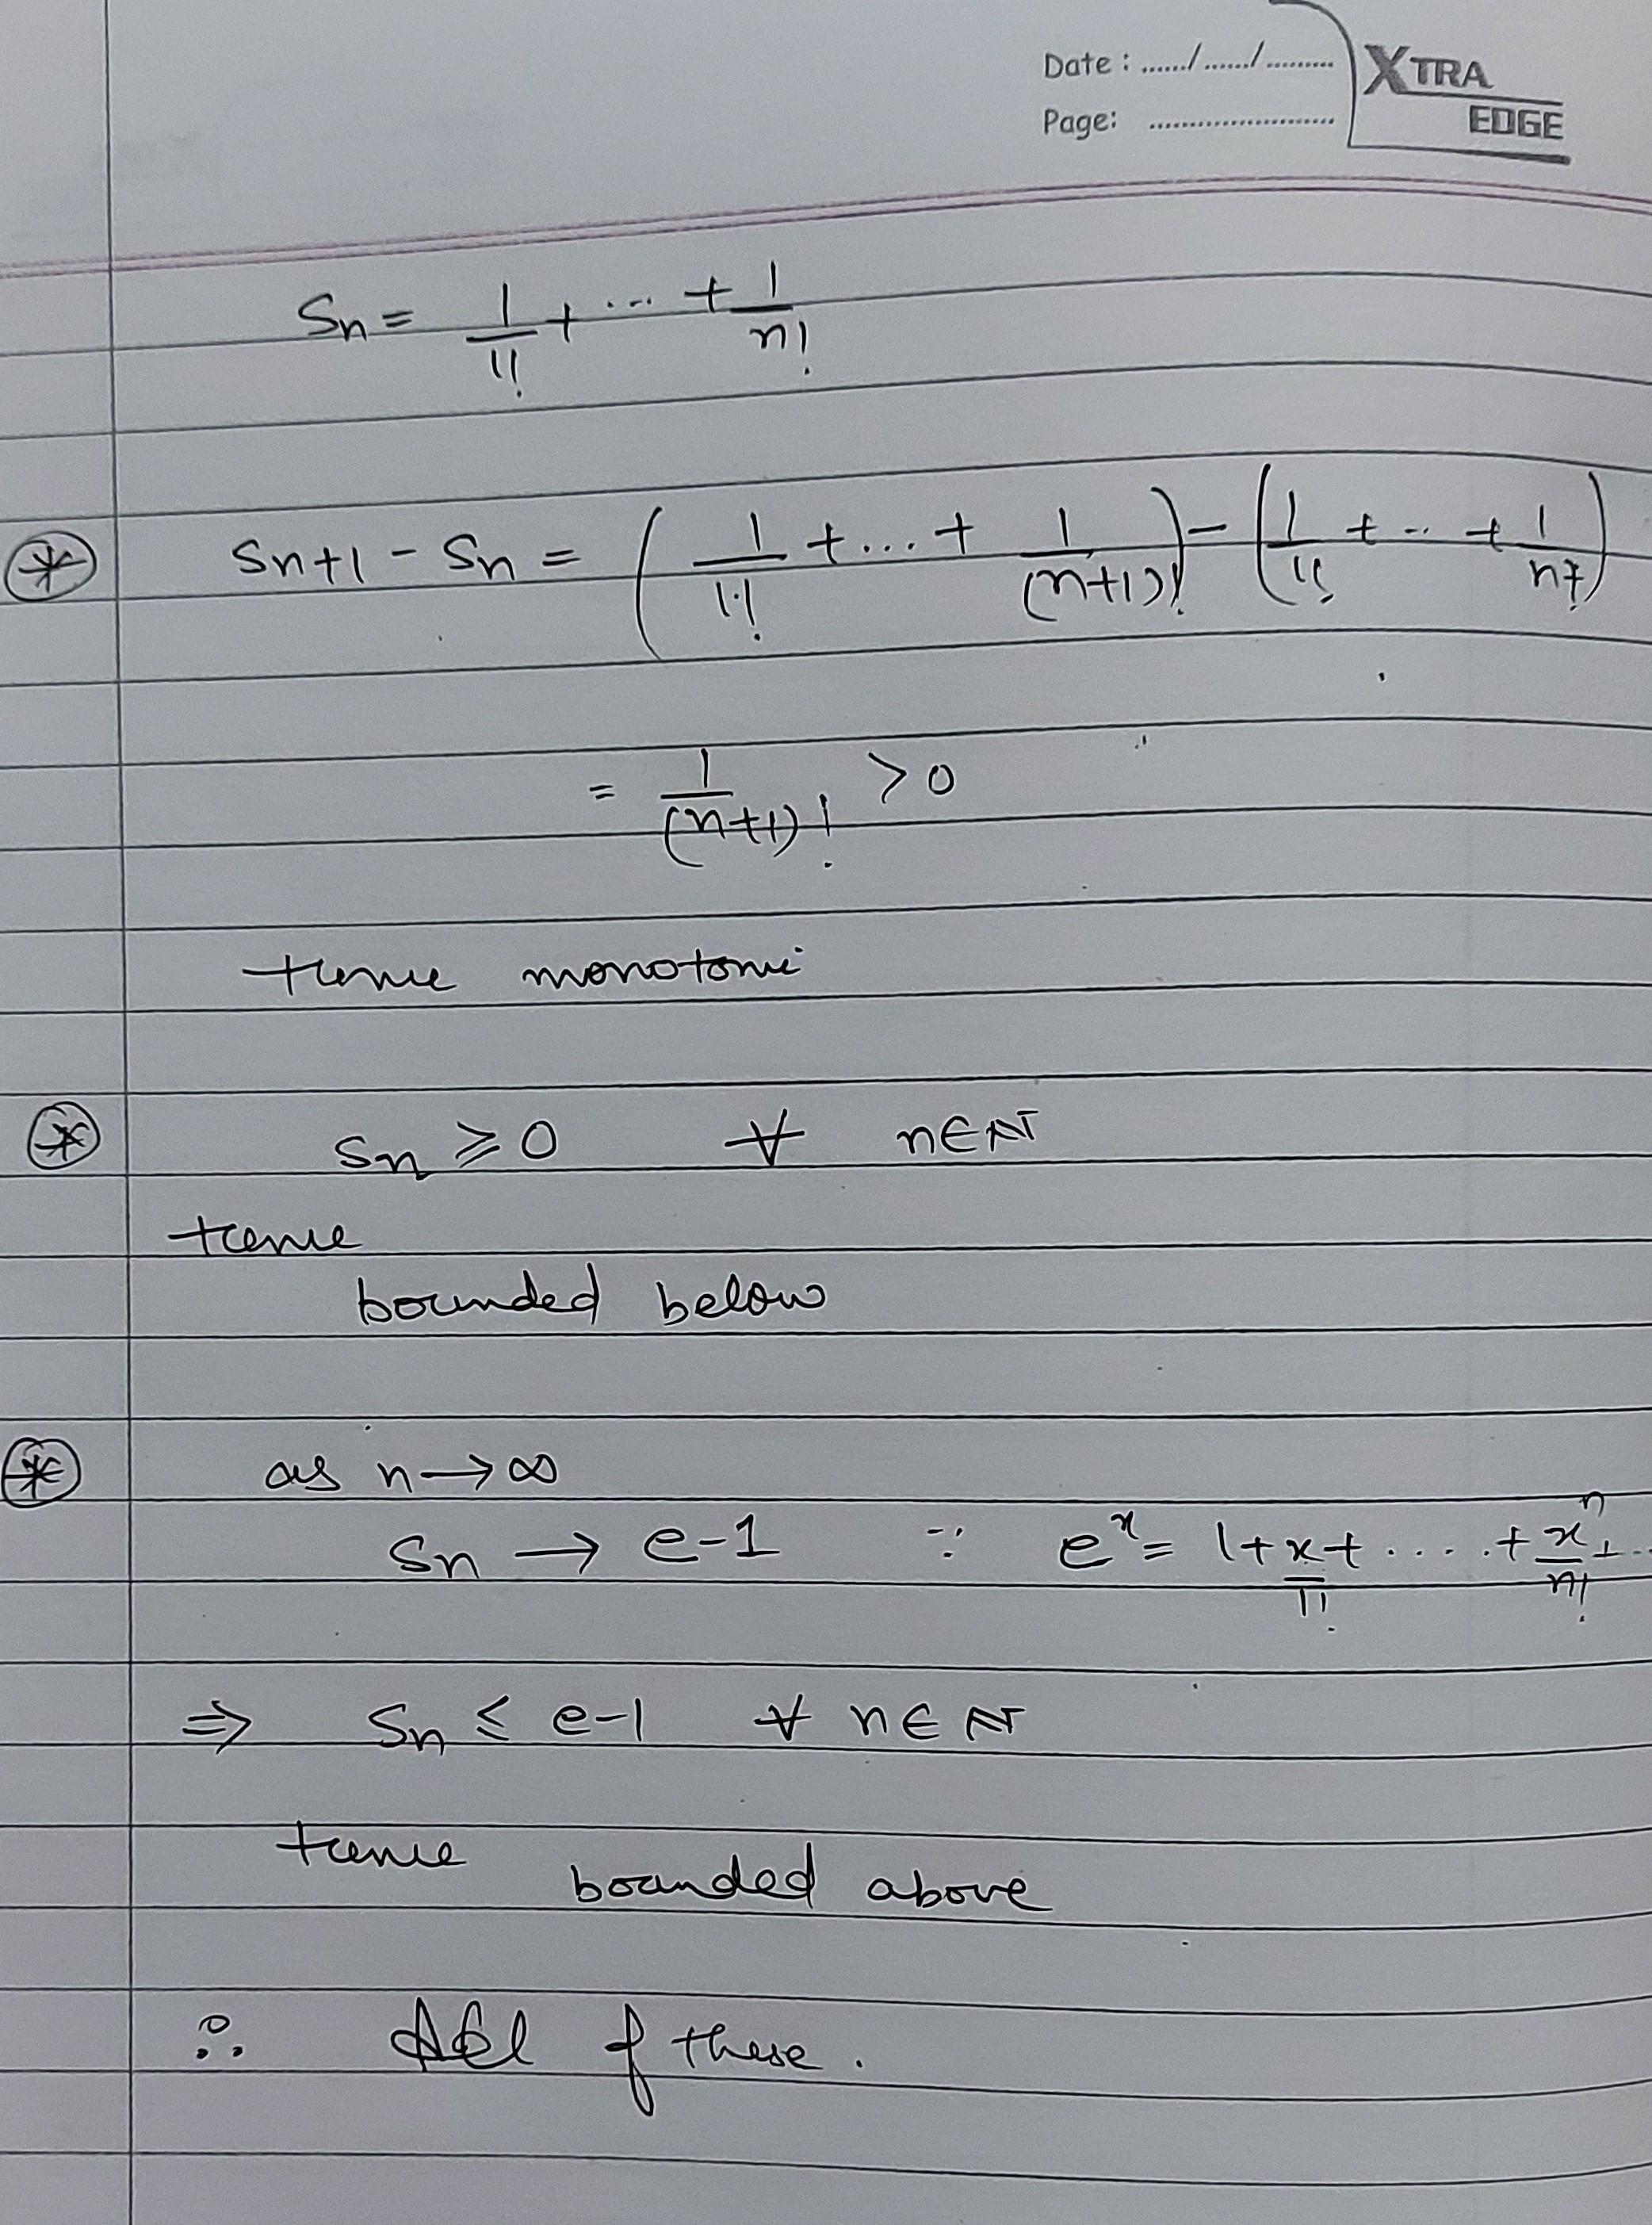 Date : ....../ ....../ .........
Page: ........................
XTRA EDGE
Sn = 1/1! + ... + 1/n!
Sn+1 - Sn = (1/1! + ... + 1/(n+1)!) - (1/1! + .. + 1/n!)
= 1/(n+1)! > 0
Hence monotonic
Sn ≥ 0 ∀ n∈N
Hence
bounded below
as n→∞
Sn → e-1 ∵ e^x = 1 + x/1! + .... + x^n/n! + ...
⇒ Sn ≤ e-1 ∀ n∈N
Hence bounded above
∴ All of these.